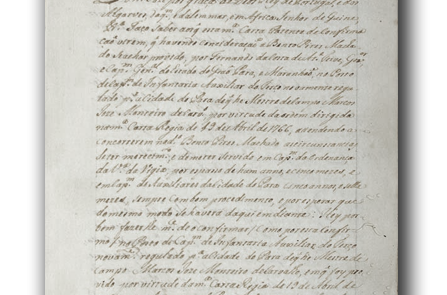 por graça de Deos Rey de Portugal, e dos
Algarves, daq.^m, e dalem mar, em Africa Senhor de Guiné,
&.^a Faço Saber aos q̃ esta m.^a Carta Patente de Confirma
ção virem, q̃ havendo consideração a Bento Pires Macha
do se achar provido, por Fernando da Costa de
e Cap.^m Gen.^l do Estado do Grão Pará, e Maranhão, no Posto
de Cap.^m de Infantaria Auxiliar do Terço novamente regu
lado p.^a a Cidade do Pará de q̃ he Mestre de Campo Marcos
Joze Monteiro de Carv.^o, por virtude da ordem dirigida
na m.^a Carta Regia de 12 de Abril de 1766, attendendo a
concorrerem no d.^o Bento Pires Machado as circunstancias
de ter merecim.^to e de me ter servido em Cap.^m da Ordenança
da V.^a da Vigia, por espaço de hum anno, e
em Cap.^m de Familiares da Cidade do Pará annos, e sette
mezes, sempre com bom procedimento, e por esperar que
do mesmo modo se haverá daqui em diante: Hey por
bem fazerlhe m.^ce de o confirmar / Como por esta confir
mo / no Posto de Cap.^m de Infantaria Auxiliar do Terço
novam.^te regulado p.^a a Cidade do Pará de q̃ he Mestre de
Campo Marcos Joze Monteiro de Carvalho, em q̃ foy pro
vido por virtude da m.^a Carta Regia de 12 de Abril de